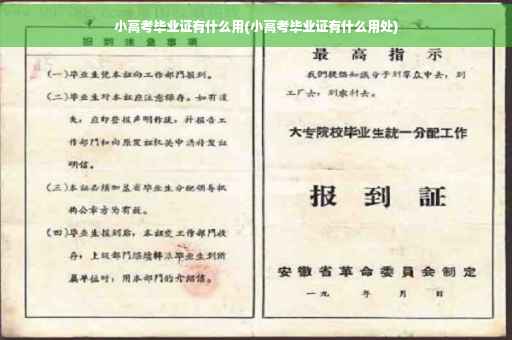 小高考毕业证有什么用(小高考毕业证有什么用处)
报到注意事项
(一)毕业生凭本证向工作部門报到。
(二)毕业生对本証应注意保存。如有遗
失，应即登报声明作废，并报告工
作部門和向原发証机关申請补发証
明信。
(三)本証必须加盖省毕业生分配领导机
构公章方为有效。
(四)毕业生报到后，本証交工作部門收
存；上级部門
毕业生到所
属单位时，用本部門的介绍信。
最高指示
我們提倡知識分子到羣众中去，到
工厂去，到农村去。
大专院校毕业生統一分配工作
报到証
安徽省革命委員会制定
一九 年 月 日